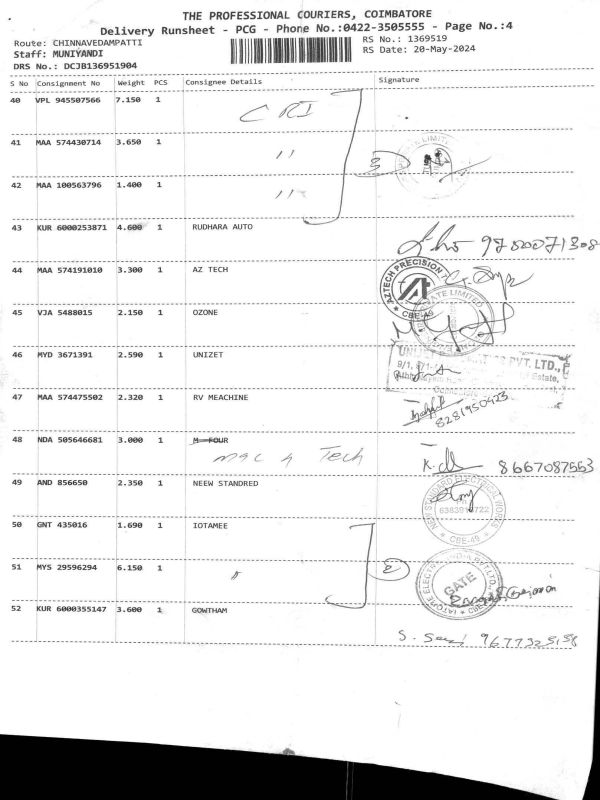 THE PROFESSIONAL COURIERS, COIMBATORE
Delivery Runsheet - PCG - Phone No.:0422-3505555 - Page No.:4
Route: CHINNAVEDAMPATTI RS No.: 1369519
Staff: MUNIYANDI RS Date: 20-May-2024
DRS No.: DCJB136951904
S No Consignment No Weight PCS Consignee Details Signature
40 VPL 945507566 7.150 1 CRI
41 MAA 574430714 3.650 1 "
3
42 MAA 100563796 1.400 1 "
43 KUR 6000253871 4.600 1 RUDHARA AUTO
44 MAA 574191010 3.300 1 AZ TECH
AZTECH PRECISION
CBE-49
45 VJA 5488015 2.150 1 OZONE
GATE
46 MYD 3671391 2.590 1 UNIZET
PVT. LTD.,
Estate,
47 MAA 574475502 2.320 1 RV MEACHINE
8281950423
48 NDA 505646681 3.000 1 M FOUR
Mac 4 Tech
8667087553
49 AND 856650 2.350 1 NEEW STANDRED
NEW STANDARD ELECTRICAL WORKS
CBE-49
50 GNT 435016 1.690 1 IOTAMEE
51 MYS 29596294 6.150 1 "
2
GATE
52 KUR 6000355147 3.600 1 GOWTHAM